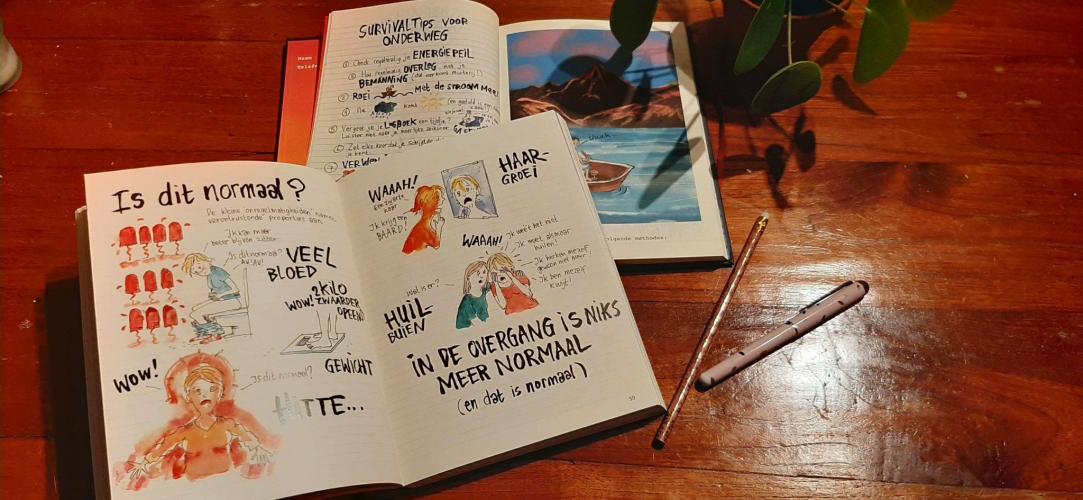 SURVIVALTIPS VOOR
ONDERWEG
① Check regelmatig je ENERGIEPEIL
② Hou regelmatig OVERLEG met je
BEMANNING (dat voorkomt muiterij!!)
③ ROEI met de STROOM MEE
④ Na komt
⑤ Vergeet je je LOGBOEK een tijdje?
VERWEN
Is dit normaal?
De kleine onregelmatigheden nemen
verontrustende proporties aan.
Ik kan maar
beter blijven zitten
Is dit normaal?
VEEL
BLOED
2 KILO
WOW! ZWAARDER
OPEENS
GEWICHT
WOW!
Is dit normaal?
HITTE...
HAAR-
GROEI
WAAAH!
Een zwarte
haar
Ik krijg een
BAARD!
WAAAH!
Ik weet het niet
Ik moet alsmaar
huilen!
Ik herken mezelf
gewoon niet meer!
Ik ben mezelf
kwijt!
Wat is er?
HUIL
BUIEN
IN DE OVERGANG IS NIKS
MEER NORMAAL
(en dat is normaal)
59
lgende methodes: